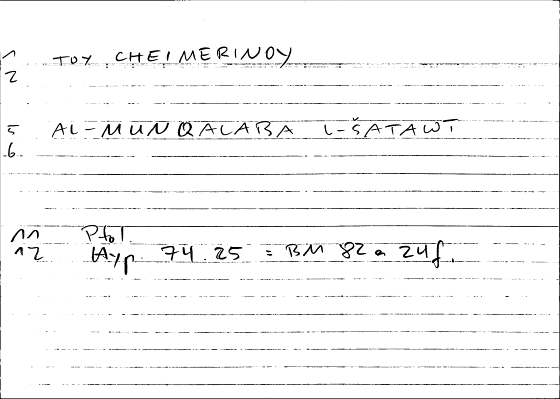 1 TOY CHEIMERINOY
2
5 AL-MUNQALABA L-ŠATAWĪ
6.
11 Ptol.
12 Hyp. 74.25 = BM 82 a 24f.